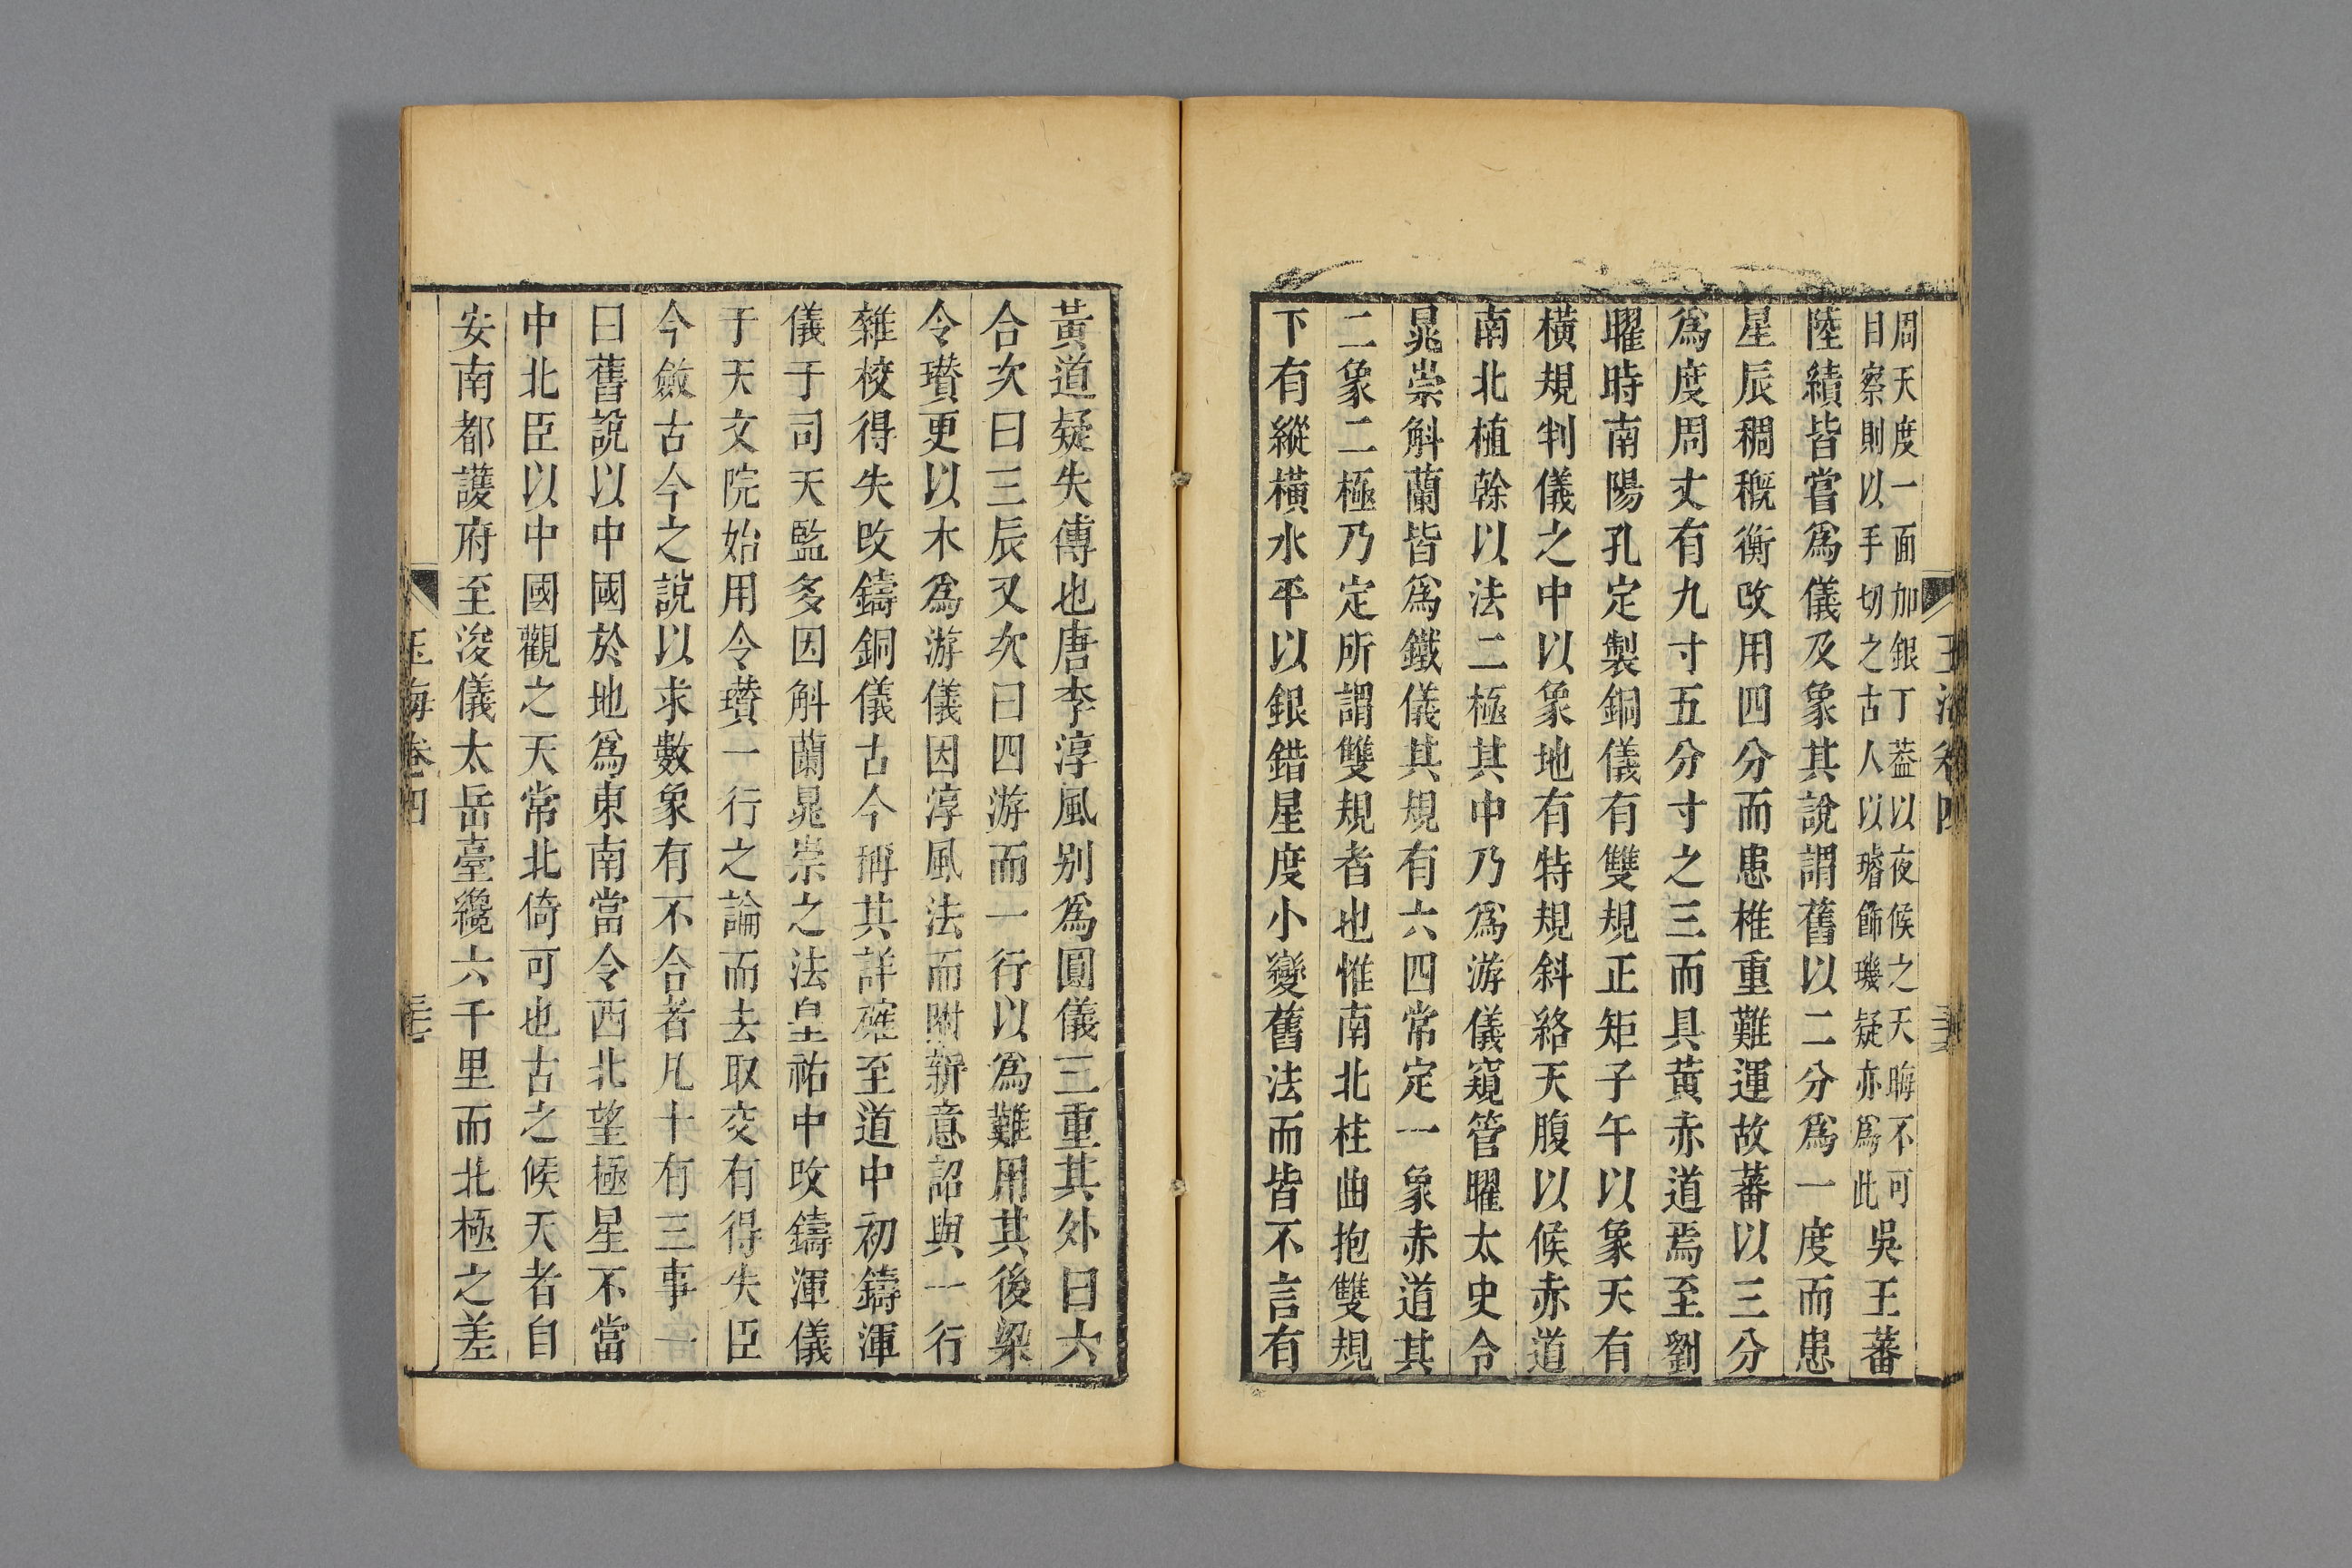 周天度一面加銀丁葢以夜候之天晦不可
目察則以手切之古人以璿飾璣疑亦爲此
吳王蕃
陸績皆嘗爲儀及象其說謂舊以二分爲一度而患
星辰稠穊衡改用四分而患椎重難運故蕃以三分
爲度周丈有九寸五分寸之三而具黃赤道焉至劉
曜時南陽孔定製銅儀有雙規正矩子午以象天有
橫規判儀之中以象地有特規斜絡天腹以候赤道
南北植榦以法二極其中乃爲游儀窺管曜太史令
晁崇斛蘭皆爲鐵儀其規有六四常定一象赤道其
二象二極乃定所謂雙規者也惟南北柱曲抱雙規
下有縱橫水平以銀錯星度小變舊法而皆不言有
黃道疑失傳也唐李淳風别爲圓儀三重其外曰六
合次曰三辰又次曰四游而一行以爲難用其後梁
令瓚更以木爲游儀因淳風法而附新意詔與一行
雜校得失改鑄銅儀古今稱其詳確至道中初鑄渾
儀于司天監多因斛蘭晁崇之法皇祐中改鑄渾儀
于天文院始用令瓚一行之論而去取交有得失臣
今斂古今之說以求數象有不合者凡十有三事一
曰舊說以中國於地爲東南當令西北望極星不當
中北臣以中國觀之天常北倚可也古之候天者自
安南都護府至浚儀太岳臺纔六千里而北極之差
玉海卷四